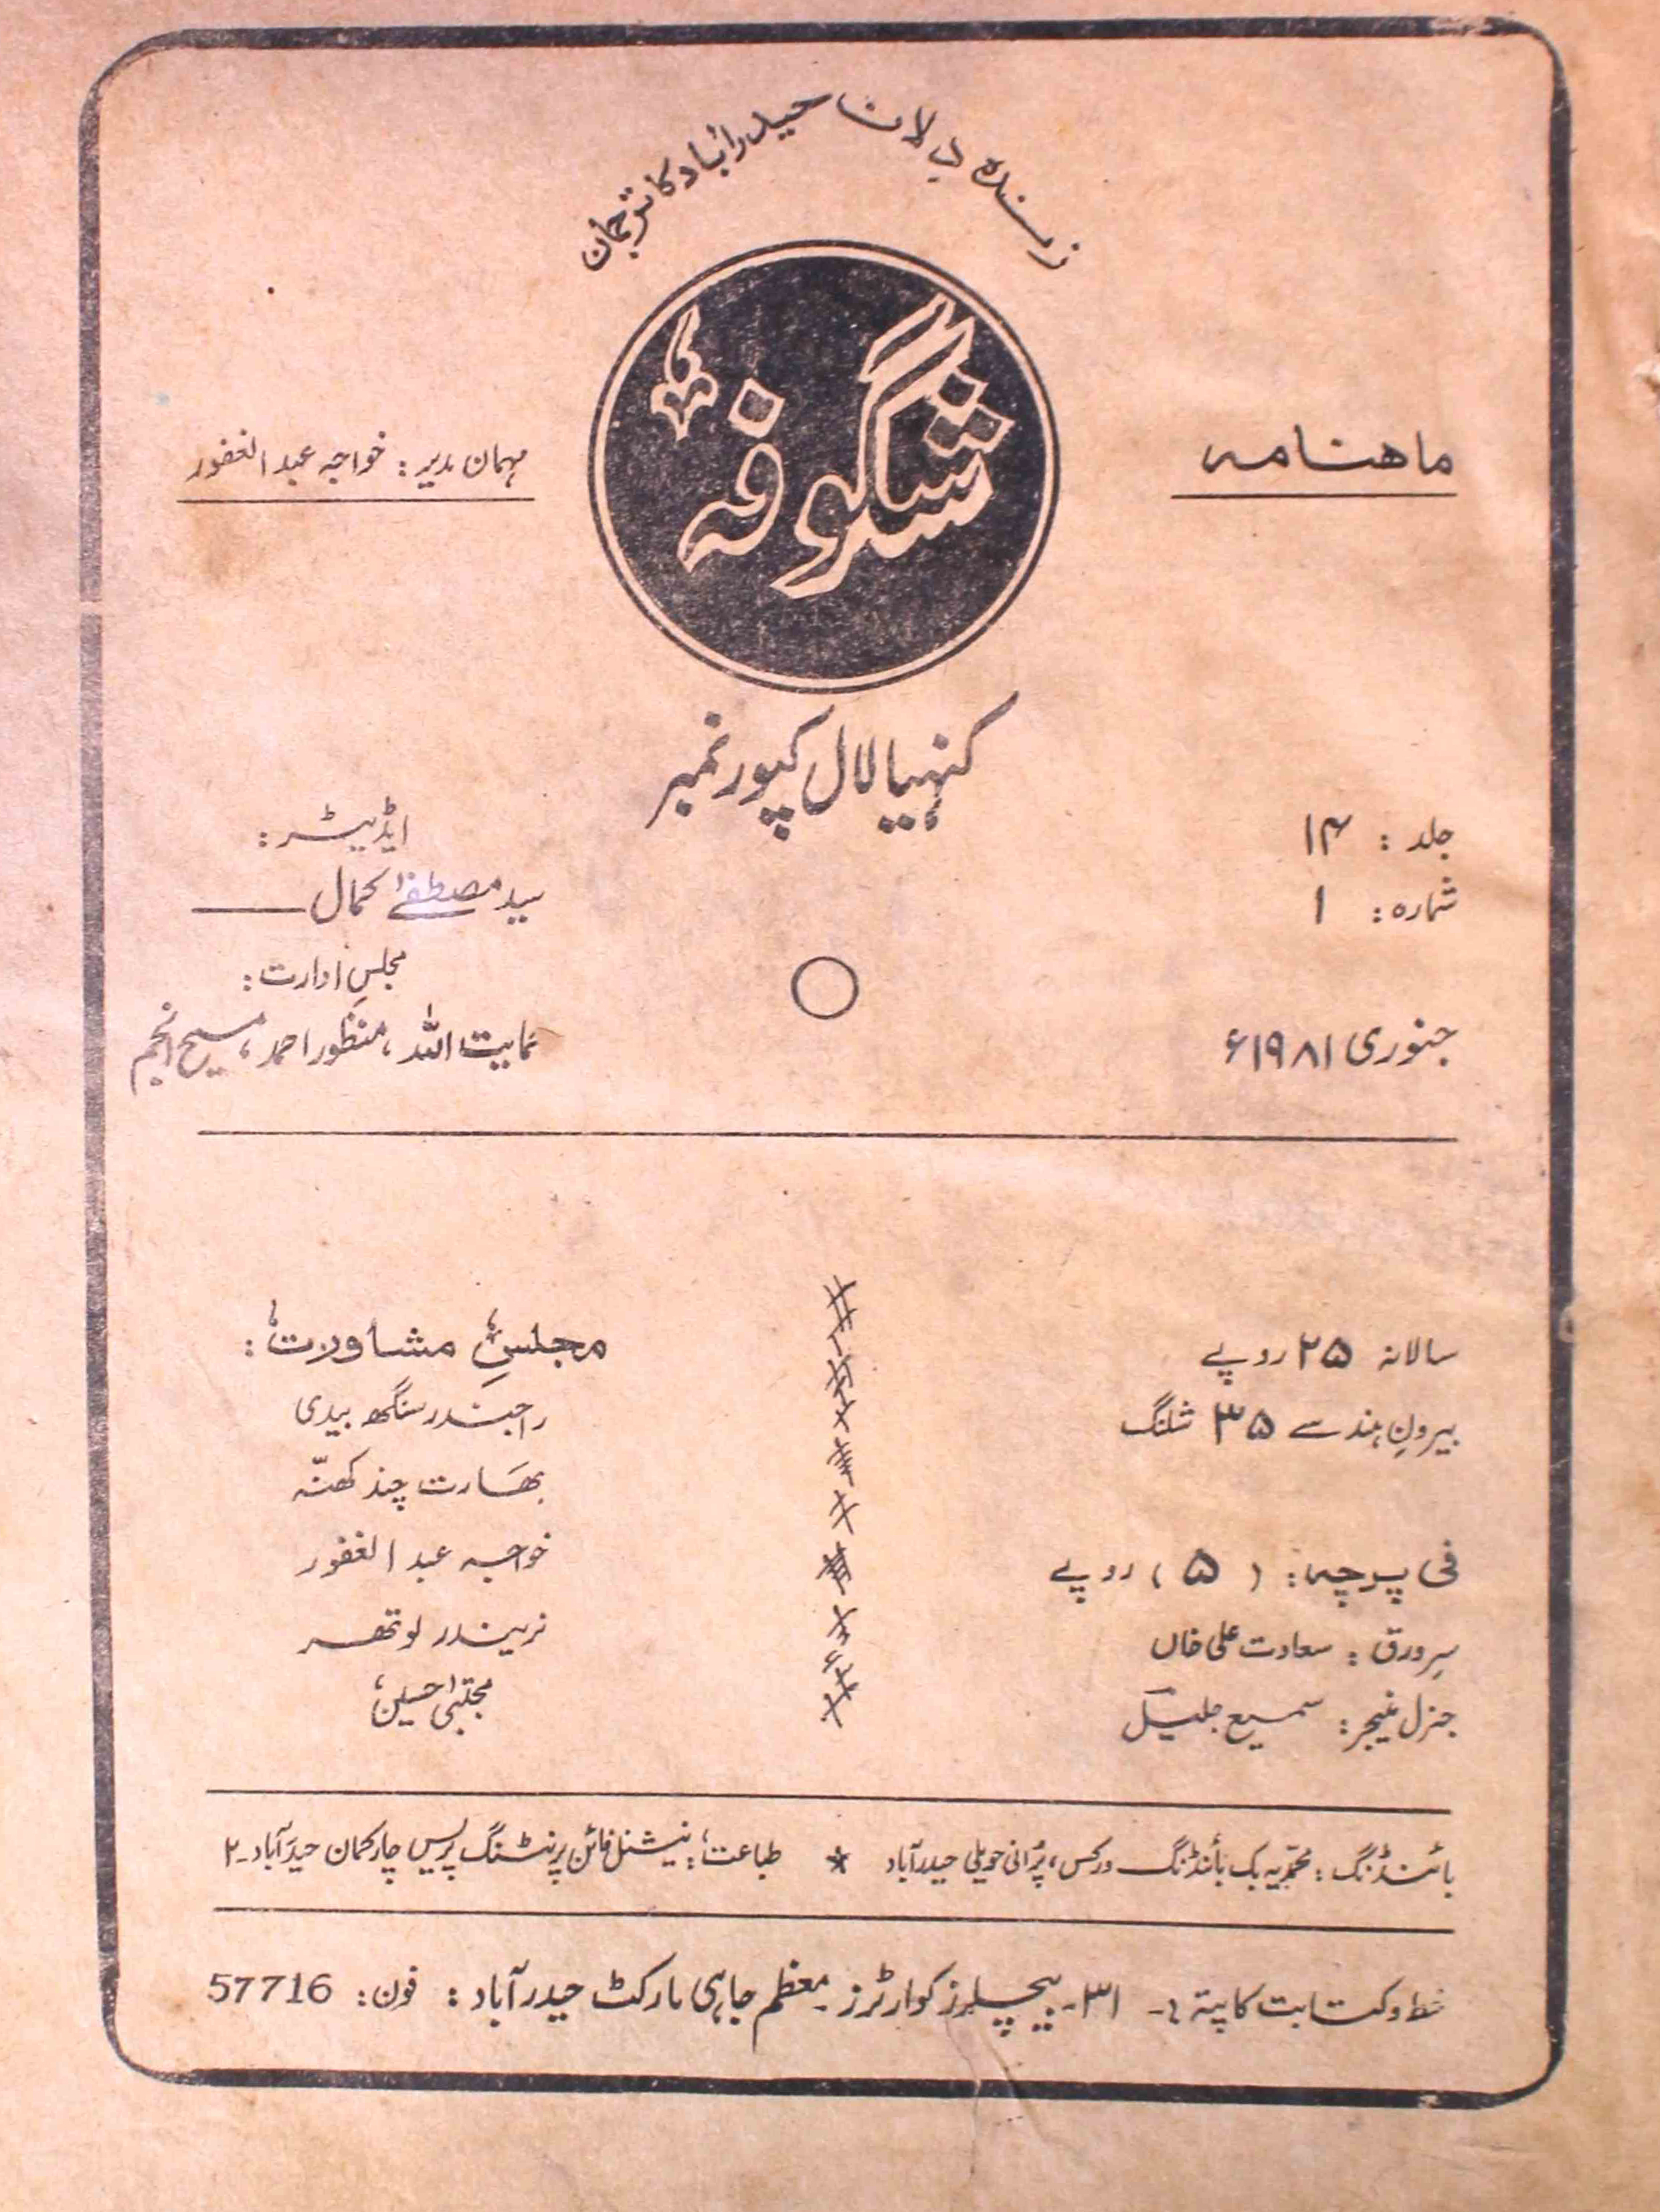 زندہ دلان حیدرآباد کا ترجمان
ماهنامہ
شگوفہ
مہمان مدیر: خواجہ عبدالغفور
کنہیا لال کپور نمبر
جلد: ۱۴
شمارہ: ۱
جنوری ۱۹۸۱ء
ایڈیٹر:
سید مصطفےٰ کمال
مجلسِ ادارت:
حمایت اللہ، منظور احمد، مسیح انجم
سالانہ ۲۵ روپے
بیرونِ ہند سے ۳۵ شلنگ
فی پرچہ: (۵) روپے
سرورق: سعادت علی خاں
جنرل منیجر: سمیع جلیل
مجلسِ مشاورت:
راجندر سنگھ بیدی
بھارت چند کھنّہ
خواجہ عبدالغفور
نریندر لوتھر
مجتبیٰ حسین
بائنڈنگ: محمّدیہ بک بائنڈنگ ورکس، پُرانی حویلی حیدرآباد * طباعت: نیشنل فائن پرنٹنگ پریس چارکمان حیدرآباد۔۲
خط و کتابت کا پتہ:۔ ۳۱۔ بیچلرز کوارٹرز۔ معظم جاہی مارکٹ حیدرآباد: فون: 57716